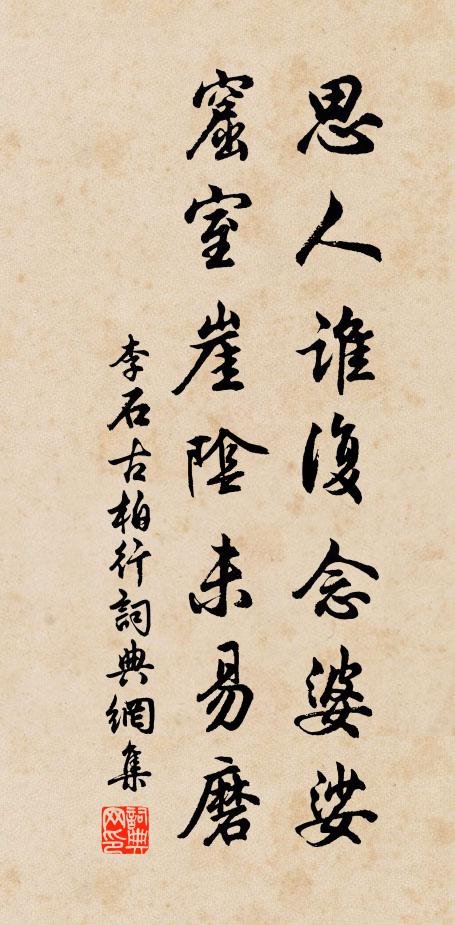 思人誰復念婆娑
窟室崖陰未易磨
李石古柏行詞典網集
詞典網印